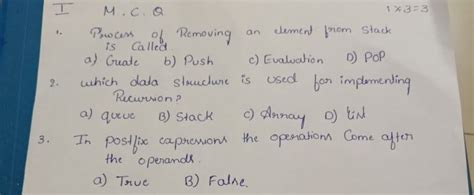 I M.C.Q 1×3=3
1. Process of Removing an element from Stack
is Called
a) Create b) Push c) Evaluation D) POP
2. which data structure is used for implementing
Recursion?
a) queue B) Stack c) Array D) List
3. In postfix expressions the operations Come after
the operands.
a) True B) False